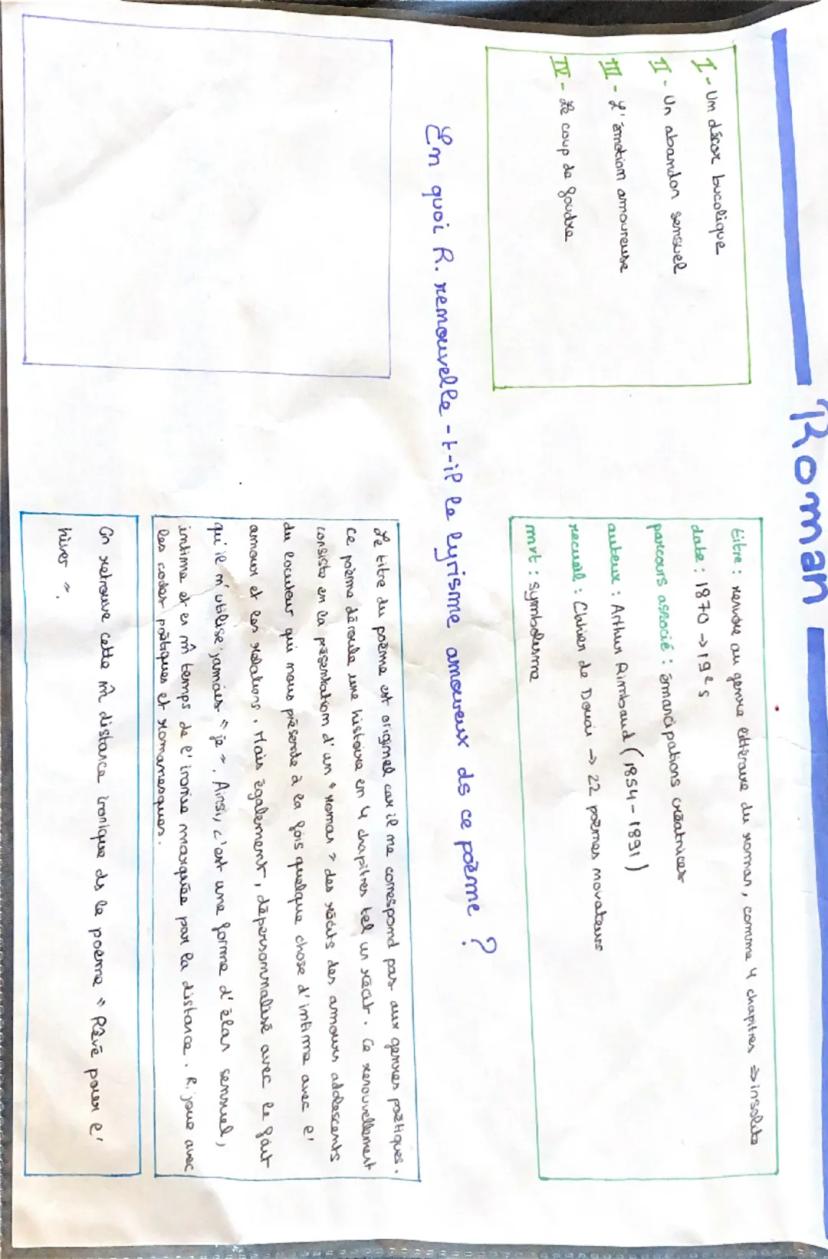 Roman
I - Un décor bucolique
II - Un abandon sensuel
III - L'émotion amoureuse
IV - Le coup de foudre
titre : renvoie au genre littéraire du roman, comme 4 chapitres => insolite
date : 1870 -> 19e s
parcours associé : émancipations créatrices
auteur : Arthur Rimbaud (1854-1891)
recueil : Cahier de Douai -> 22 poèmes novateurs
mvt : symbolisme
En quoi R. renouvelle-t-il le lyrisme amoureux ds ce poème ?
Le titre du poème est original car il ne correspond pas aux genres poétiques.
Ce poème déroule une histoire en 4 chapitres tel un récit. Ce renouvellement
consiste en la présentation d'un "roman" des récits des amours adolescents
du locuteur qui nous présente à la fois quelque chose d'intime avec l'
amour et les relations. Mais également, dépersonnalisé avec le fait
qu'il n'utilise jamais "je". Ainsi, c'est une forme d'élan sensuel,
intime et en m̂ temps de l'ironie marquée par la distance. R. joue avec
les codes poétiques et romanesques.
On retrouve cette m̂ distance ironique ds le poème "Rêvé pour l'
hiver".